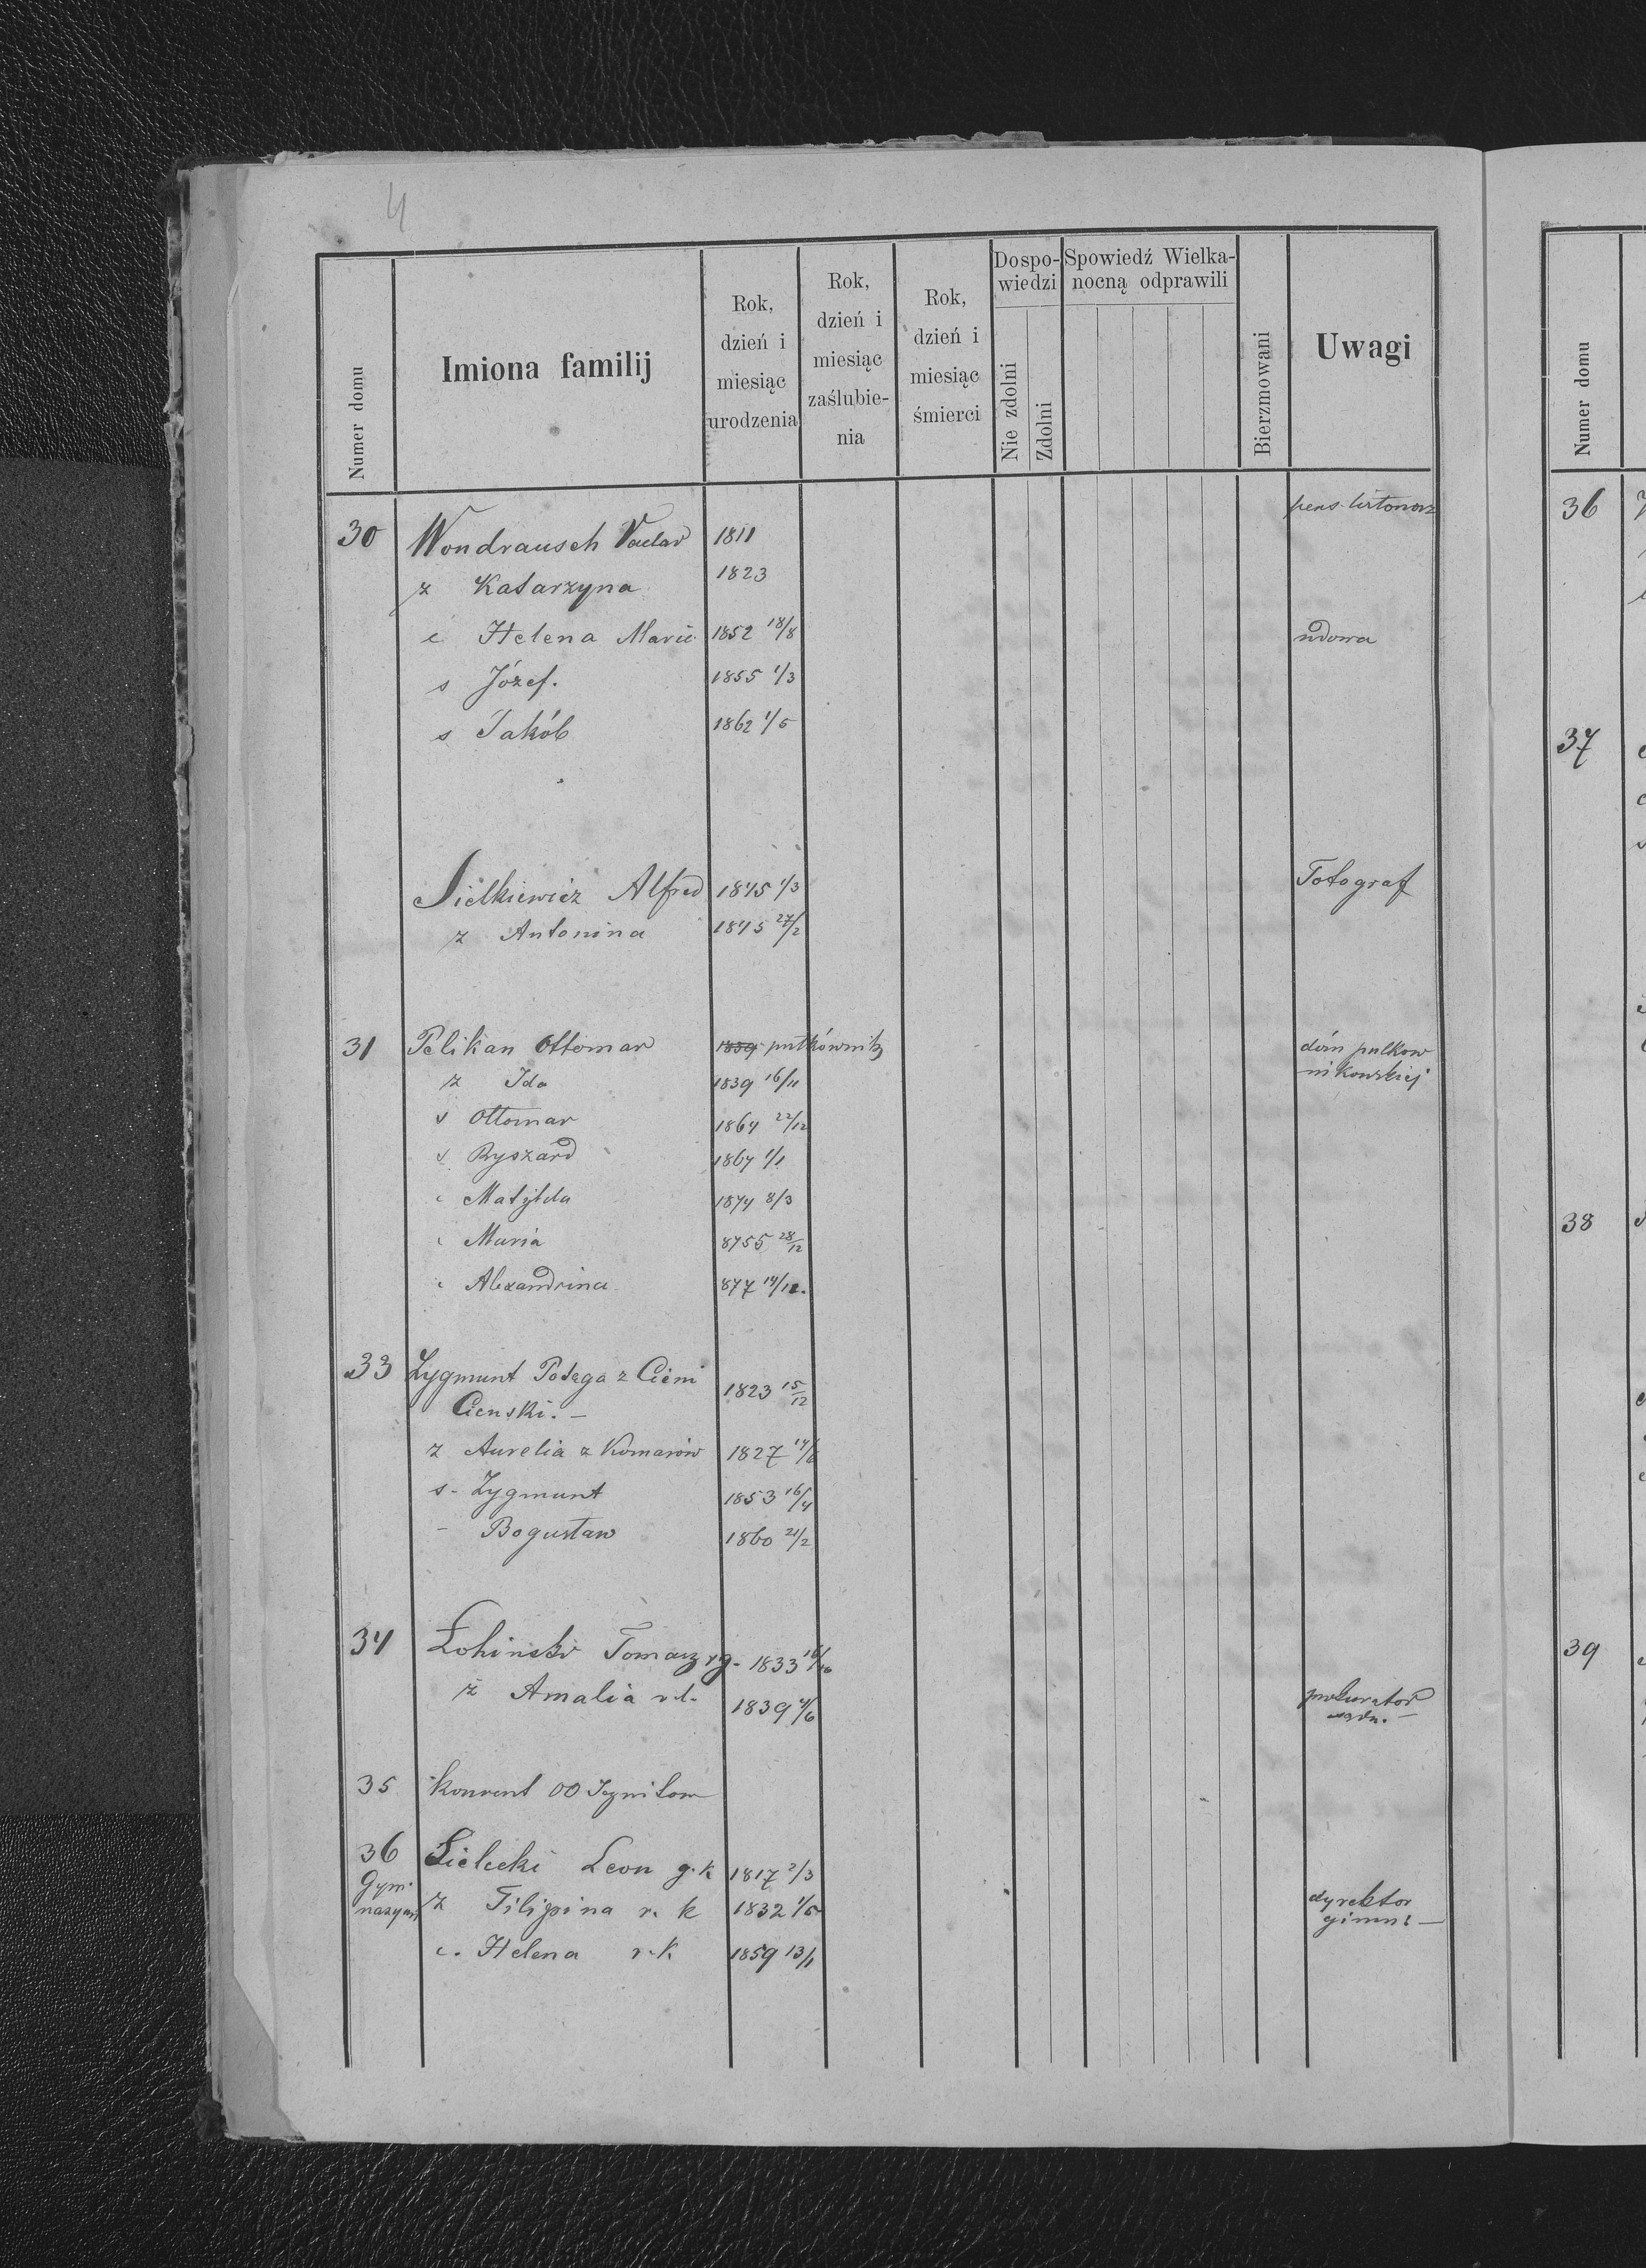 4
Numer domu
Imiona familij
Rok, dzień i miesiąc urodzenia
Rok, dzień i miesiąc zaślubie-nia
Rok, dzień i miesiąc śmierci
Dospo-wiedzi
Nie zdolni
Zdolni
Spowiedź Wielka-nocną odprawili
Bierzmowani
Uwagi
Numer domu
30 Wondrausch Vaclav 1811 pens.
z Katarzyna 1823
c Helena Maria 1852 18/8 wdowa
s Józef. 1855 1/3
s Jakób 1862 1/5
Sielkiewicz Alfred 1845 1/3 Fotograf
z Antonina 1845 27/2
31 Pelikan Ottomar 1839 pułkownik dóm pulkow
z Ida 1839 16/11 nikowskiej
s Ottomar 1864 22/12
s Ryszard 1867 1/1
c Matylda 1874 8/3
c Maria 8755 28/12
c Alexandrina 877 14/12.
33 Zygmunt Potega z Cieni
Cienski. – 1823 15/12
z Aurelia z Komarów 1827 14/6
s - Zygmunt 1853 16/4
- Bogusław 1860 21/2
34 Łohinski Tomasz rg. 1833 16/10
z Amalia rł. 1839 4/6 prokurator
35 Konvent OO Jezuitow
36 Sielecki Leon g.k 1817 2/3
Gym.
nazyum z Filipina r. k 1832 1/5 dyrektor
gimn: –
c. Helena r.k 1859 13/1
36
37
38
39